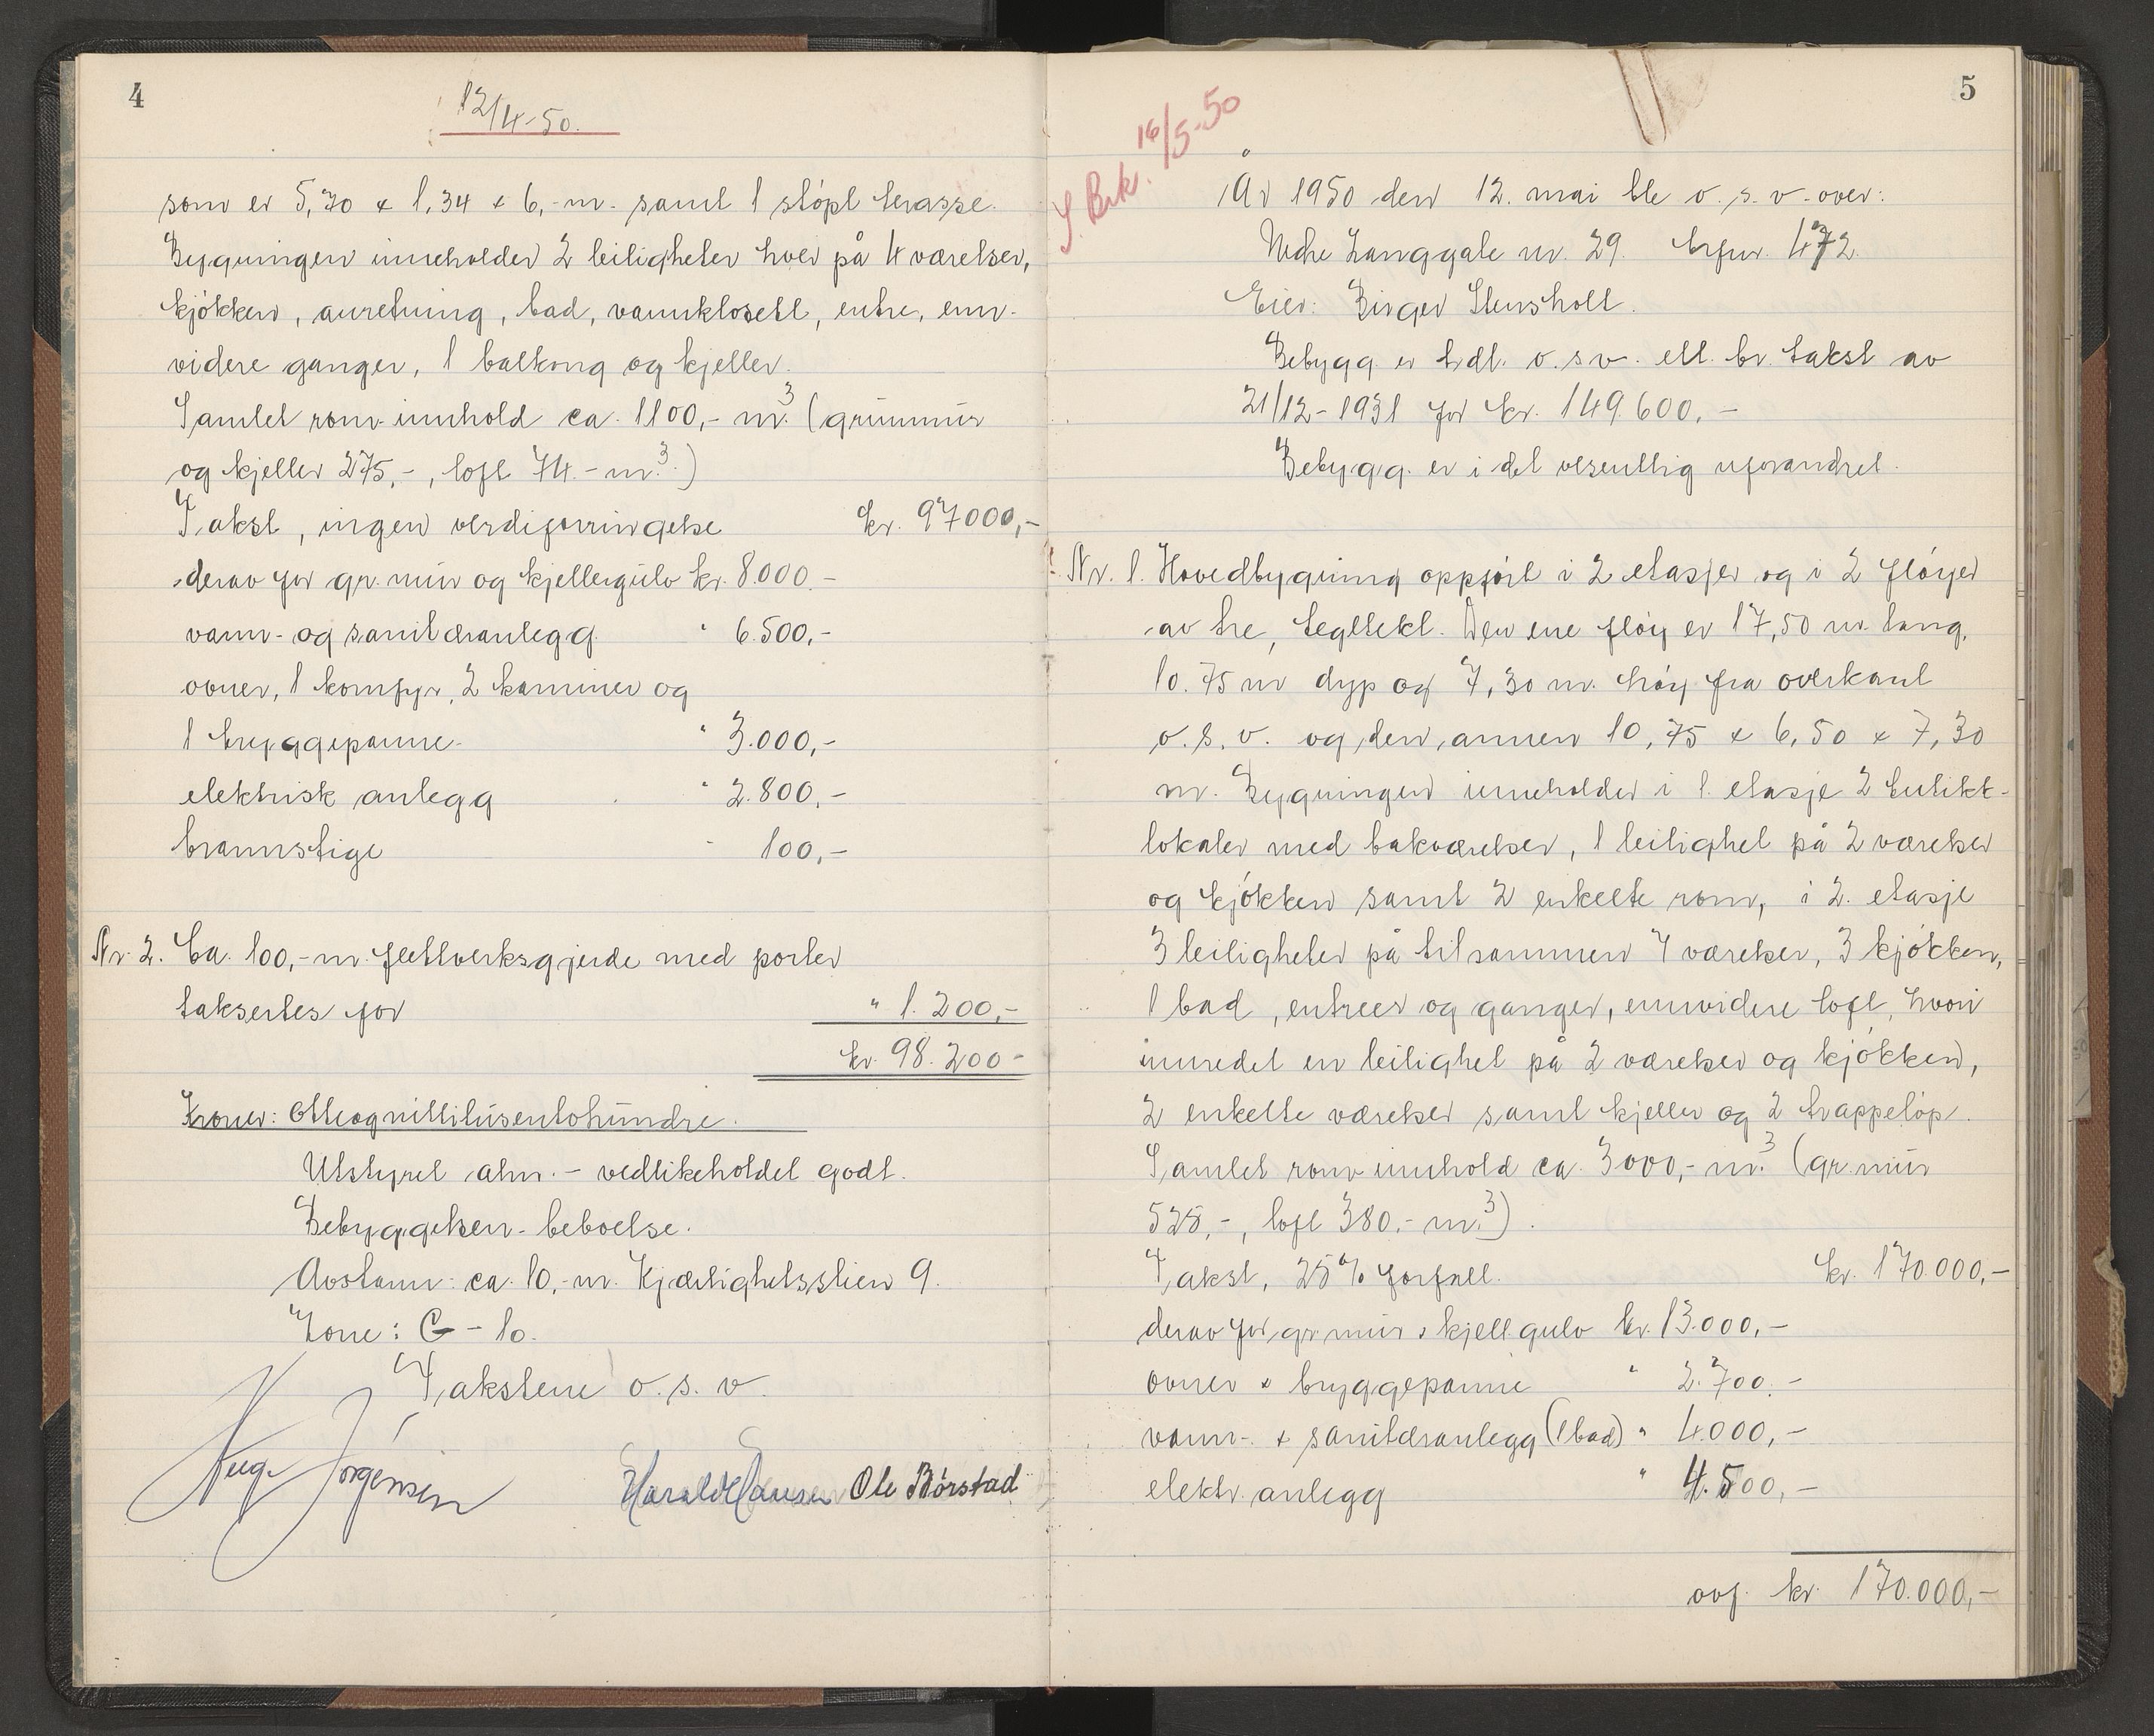 4
12/4-50.
som er 5,70 x 1,34 x 6,- m. samt 1 støpt terasse.
Bygningen inneholder 2 leiligheter hver på 4 værelser,
kjøkken, anretning, bad, vannklosett, entre, enn-
videre ganger, 1 balkong og kjeller.
Samlet rom-innhold ca. 1100,- m.³ (grunnmur
og kjeller 275,-, loft 74.- m.³)
Takst, ingen verdiforringelse kr. 97000,-
derav for gr.mur og kjellergulv kr. 8.000.-
vann- og sanitæranlegg " 6.500,-
ovner, 1 komfyr, 2 kaminer og
1 bryggepanne " 3.000,-
elektrisk anlegg " 2.800,-
brannstige - 100,-
Nr. 2. Ca. 100,- m. flettverksgjerde med porter
taksertes for " 1.200,-
kr. 98.200-
Kroner: Otteognittitusentohundre.
Utstyret alm. - vedlikeholdet godt.
Bebyggelsen - beboelse.
Avstann: ca. 10,- m. Kjærlighetsstien 9.
Zone: C - 10.
Takstene o. s. v.
Aug. Jørgensen Harald Hansen Ole Börstad
5
S. Brk. 16/5-50
År 1950 den 12. mai ble o. s. v. over:
Nedre Langgate nr. 29. brfnr. 472.
Eier: Birger Stensholt.
Bebygg. er hdl. o. s v. ell. br. takst av
21/12-1931 for kr. 149.600,-
Bebygg. er i det vesentlig uforandret.
Nr. 1. Hovedbygning oppført i 2 etasjer og i 2 fløyer
av tre, tegltekt. Den ene fløy er 17,50 m. lang,
10.75 m dyp og 7,30 m. høy fra overkant
o. s. v. og den annen 10,75 x 6,50 x 7,30
m. Bygningen inneholder i 1. etasje 2 butikk-
lokaler med bakværelser, 1 leilighet på 2 værelser
og kjøkken samt 2 enkelte rom, i 2. etasje
3 leiligheter på tilsammen 7 værelser, 3 kjøkken,
1 bad, entreer og ganger, ennvidere loft, hvori
innredet en leilighet på 2 værelser og kjøkken,
2 enkelte værelser samt kjeller og 2 trappeløp.
Samlet rom-innhold ca. 3000,- m.³ (gr.mur
525,-, loft 380.- m.³).
Takst, 25% forfall. kr. 170.000,-
derav for gr mur x kjell.gulv kr. 13.000,-
ovner x bryggepanne " 2.700.-
vann- x sanitæranlegg (1 bad) " 4.000,-
elektr. anlegg " 4.500,-
ovf. kr. 170.000,-